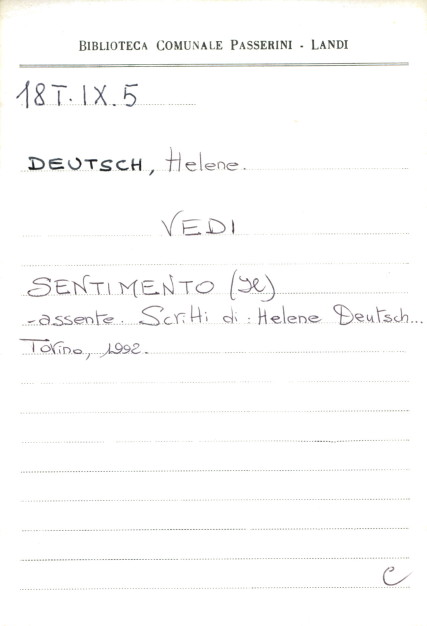 BIBLIOTECA COMUNALE PASSERINI - LANDI
18T.IX.5
DEUTSCH, Helene.
VEDI
SENTIMENTO (Il)
-assente. Scritti di: Helene Deutsch...
Torino, 1992.
C